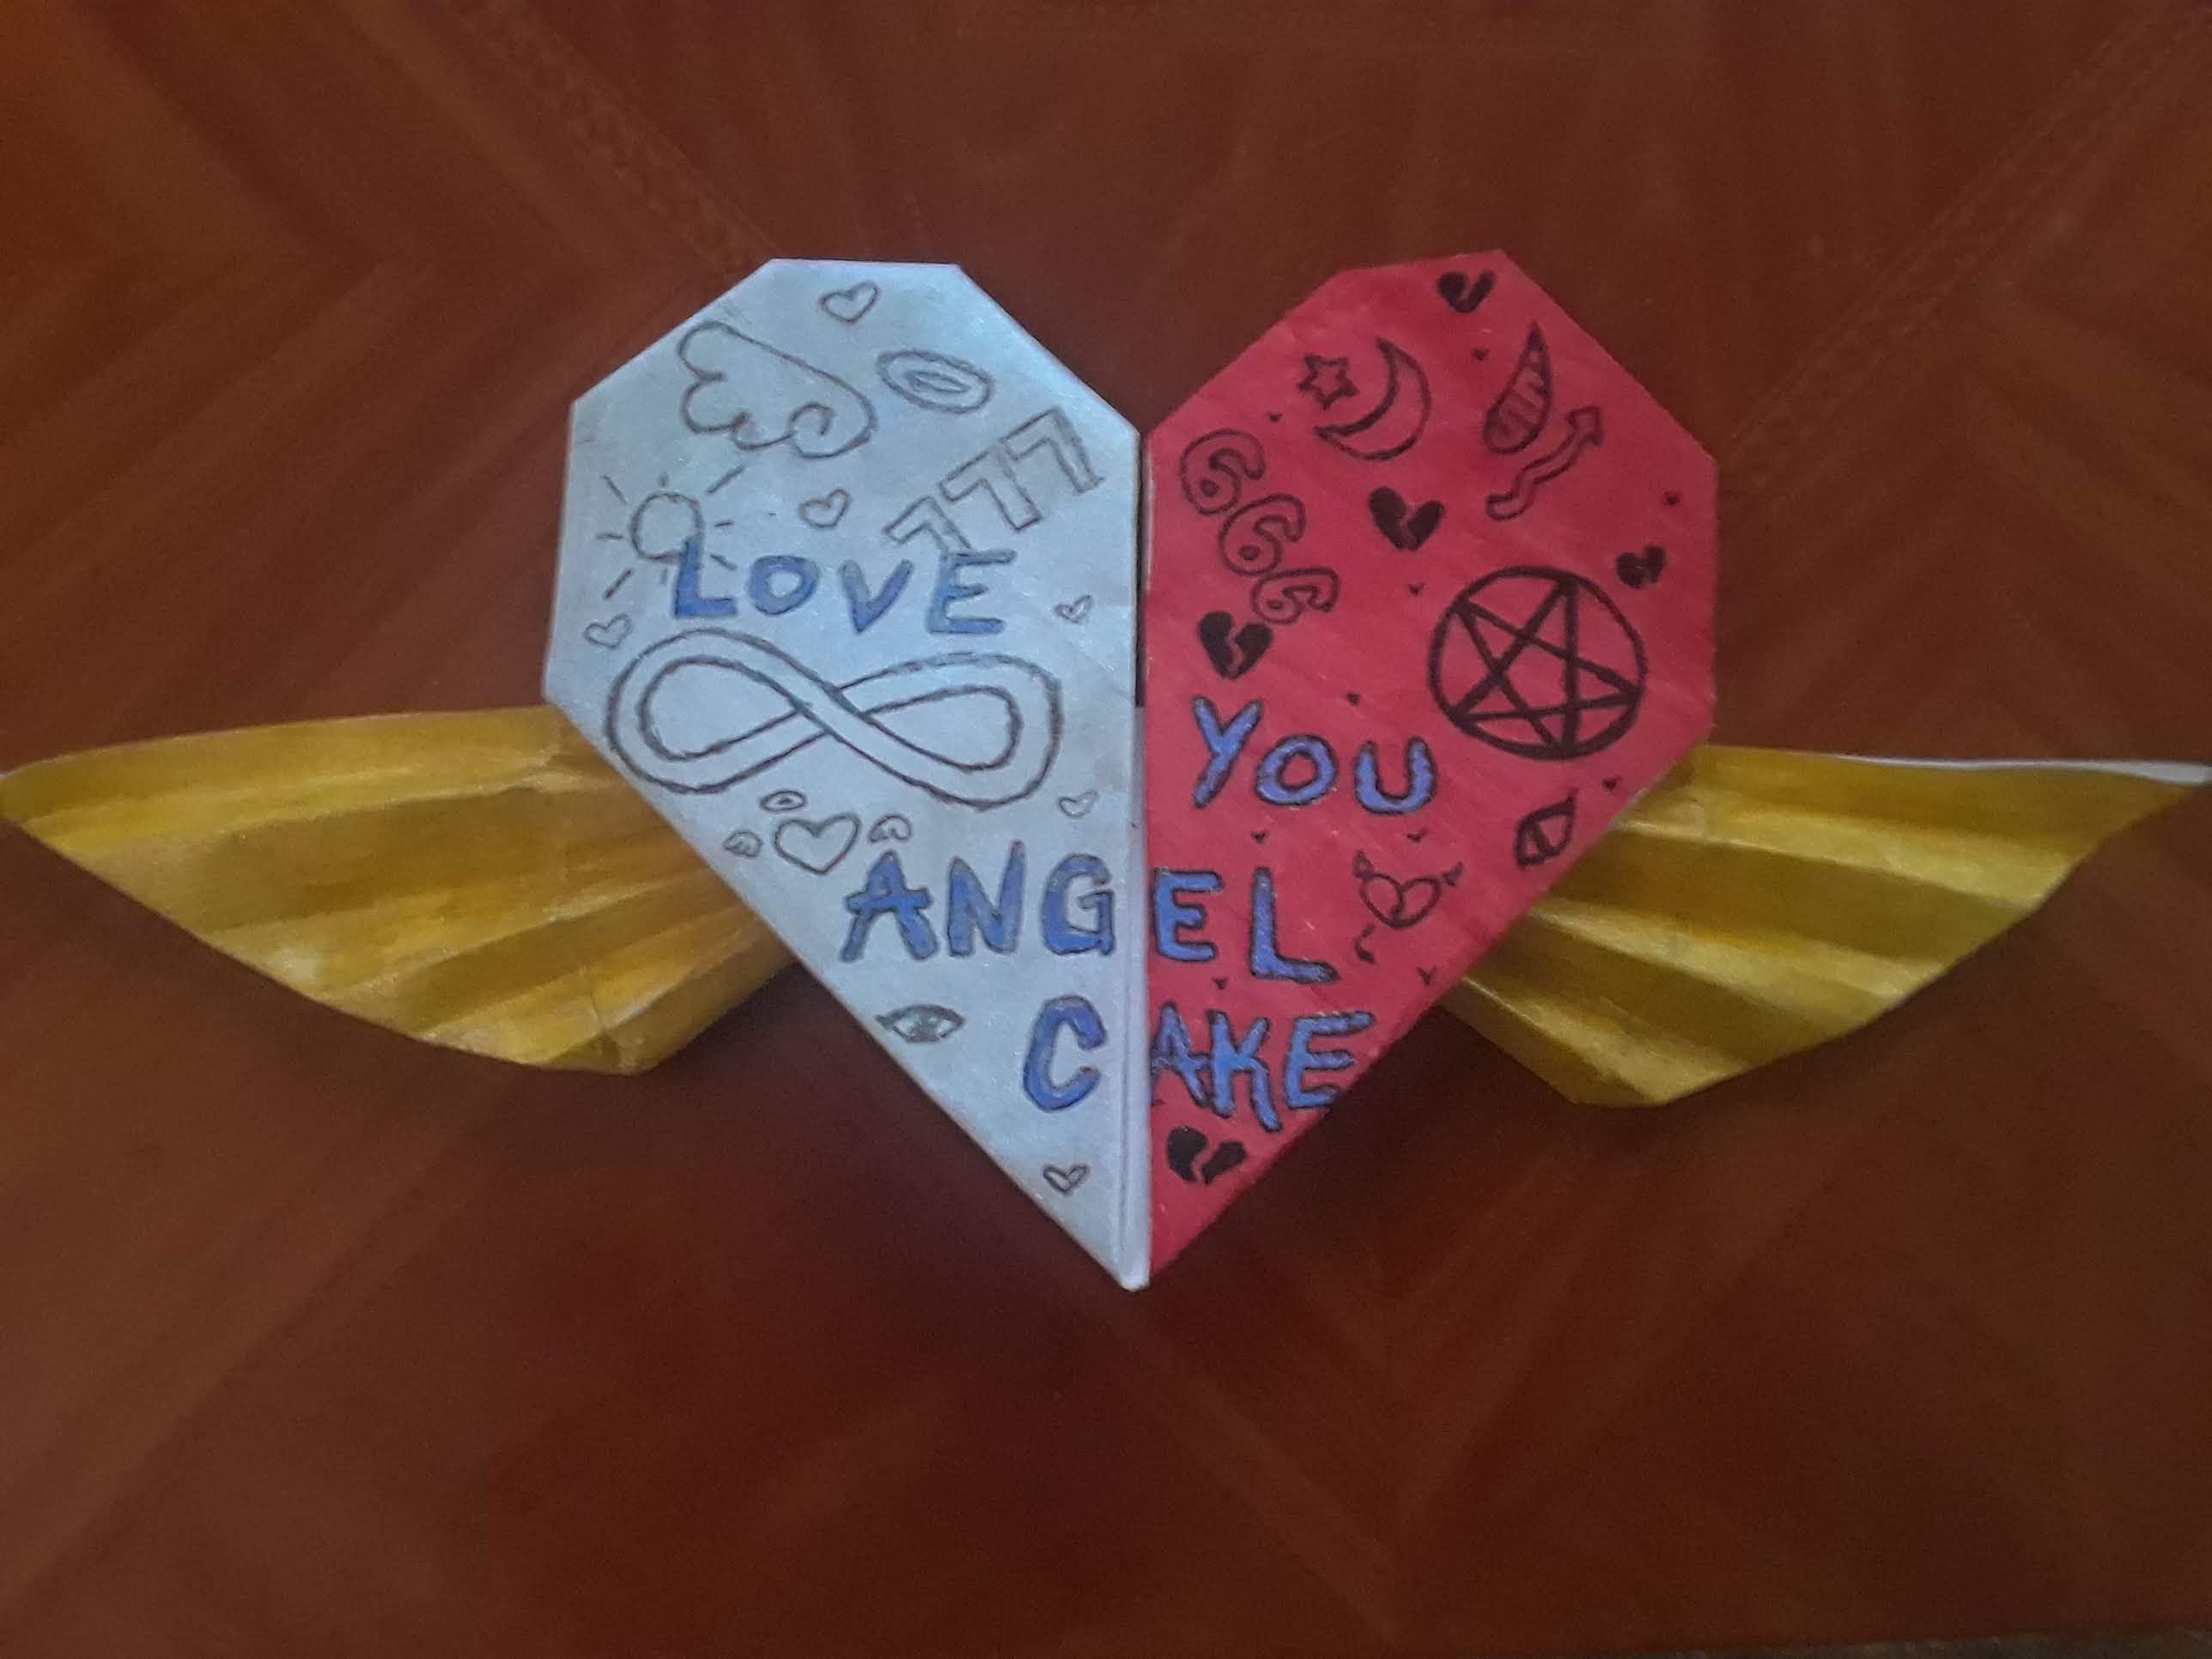 777
666
LOVE
YOU
ANGEL
CAKE